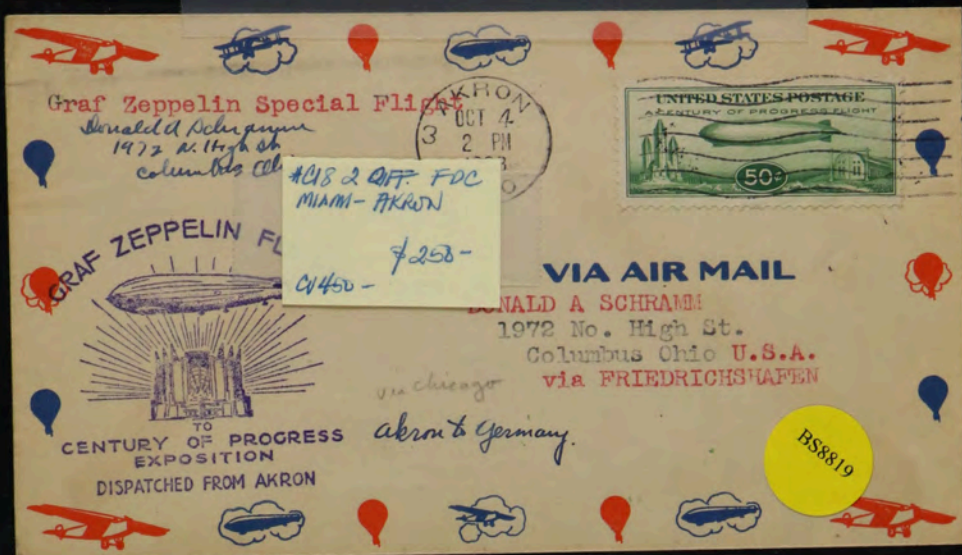 Graf Zeppelin Special Flight
Donald A Schramm
1972 N. High St
Columbus
3 AKRON
OCT 4
2 PM
UNITED STATES POSTAGE
A CENTURY OF PROGRESS FLIGHT
50¢
#C18 2 DIFF. FDC
MIAMI - AKRON
$250-
CV450-
GRAF ZEPPELIN
TO
CENTURY OF PROGRESS
EXPOSITION
DISPATCHED FROM AKRON
VIA AIR MAIL
DONALD A SCHRAMM
1972 No. High St.
Columbus Ohio U.S.A.
via FRIEDRICHSHAFEN
via Chicago
Akron to Germany.
BS8819